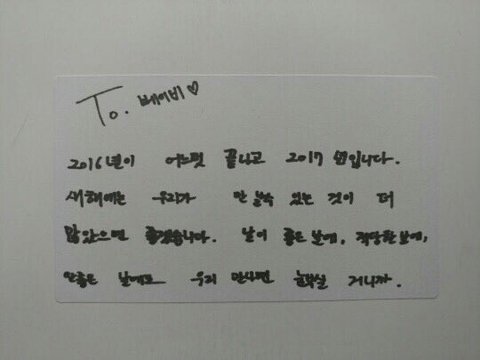 To. 베이비♡
2016년이 어느덧 끝나고 2017년입니다.
새해에는 우리가 만날 수 있는 것이 더
많았으면 좋겠습니다. 날이 좋은 날에, 적당한 날에,
안좋은 날에도 우리 만나면 눈부실 거니까.